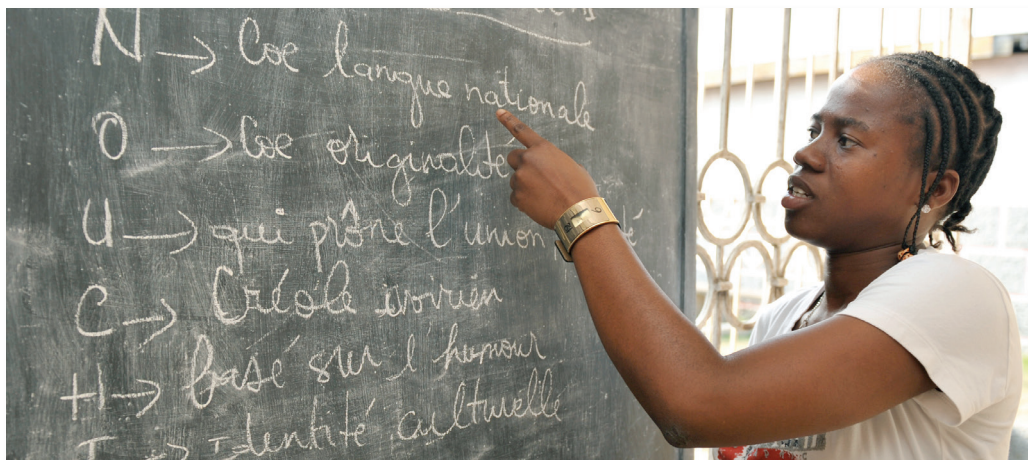 N → Coe langue nationale
O → Coe originalté
U → qui prône l'union
C → Créole ivoirien
H → basé sur l'humour
I → Identité culturelle